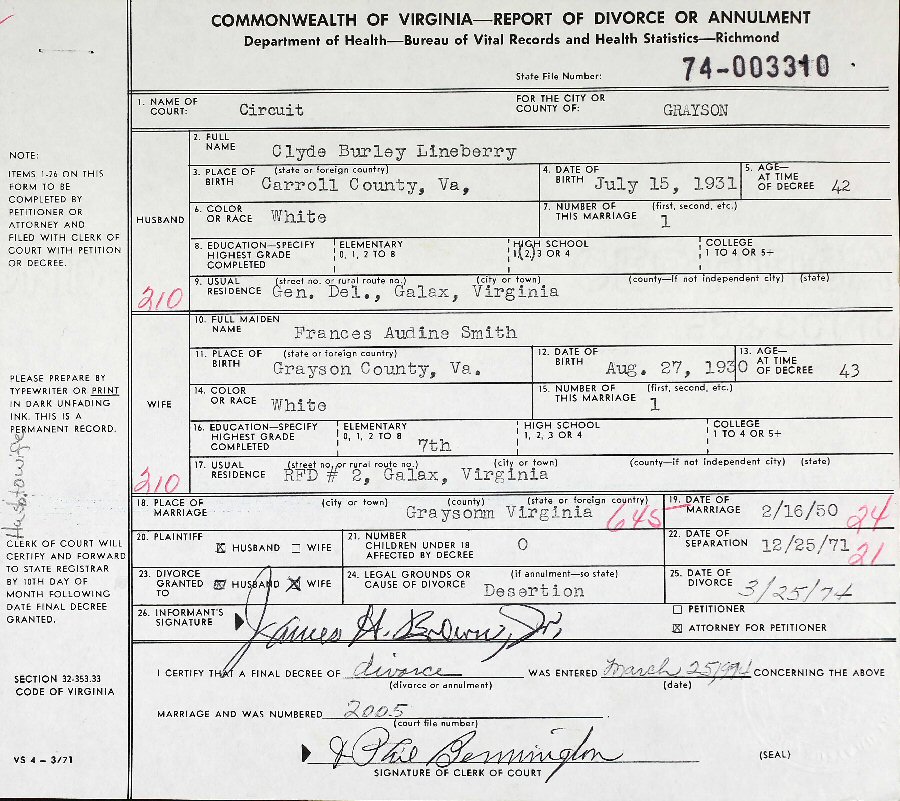 COMMONWEALTH OF VIRGINIA—REPORT OF DIVORCE OR ANNULMENT
Department of Health—Bureau of Vital Records and Health Statistics—Richmond
State File Number: 74-003310
1. NAME OF COURT: Circuit FOR THE CITY OR COUNTY OF: GRAYSON
NOTE:
ITEMS 1-26 ON THIS
FORM TO BE
COMPLETED BY
PETITIONER OR
ATTORNEY AND
FILED WITH CLERK OF
COURT WITH PETITION
OR DECREE.
HUSBAND
210
2. FULL NAME Clyde Burley Lineberry
3. PLACE OF BIRTH (state or foreign country) Carroll County, Va, 4. DATE OF BIRTH July 15, 1931 5. AGE—AT TIME OF DECREE 42
6. COLOR OR RACE White 7. NUMBER OF THIS MARRIAGE (first, second, etc.) 1
8. EDUCATION—SPECIFY HIGHEST GRADE COMPLETED ELEMENTARY 0, 1, 2 TO 8 HIGH SCHOOL 1, 2, 3 OR 4 COLLEGE 1 TO 4 OR 5+
9. USUAL RESIDENCE (street no. or rural route no.) (city or town) (county—if not independent city) (state)
Gen. Del., Galax, Virginia
PLEASE PREPARE BY
TYPEWRITER OR PRINT
IN DARK UNFADING
INK. THIS IS A
PERMANENT RECORD.
WIFE
210
10. FULL MAIDEN NAME Frances Audine Smith
11. PLACE OF BIRTH (state or foreign country) Grayson County, Va. 12. DATE OF BIRTH Aug. 27, 1930 13. AGE—AT TIME OF DECREE 43
14. COLOR OR RACE White 15. NUMBER OF THIS MARRIAGE (first, second, etc.) 1
16. EDUCATION—SPECIFY HIGHEST GRADE COMPLETED ELEMENTARY 0, 1, 2 TO 8 7th HIGH SCHOOL 1, 2, 3 OR 4 COLLEGE 1 TO 4 OR 5+
17. USUAL RESIDENCE (street no. or rural route no.) (city or town) (county—if not independent city) (state)
RFD # 2, Galax, Virginia
18. PLACE OF MARRIAGE (city or town) (county) (state or foreign country) Graysonm Virginia 645 19. DATE OF MARRIAGE 2/16/50 24
20. PLAINTIFF HUSBAND WIFE 21. NUMBER CHILDREN UNDER 18 AFFECTED BY DECREE 0 22. DATE OF SEPARATION 12/25/71 21
23. DIVORCE GRANTED TO HUSBAND WIFE 24. LEGAL GROUNDS OR CAUSE OF DIVORCE (if annulment—so state) Desertion 25. DATE OF DIVORCE 3/25/74
26. INFORMANT'S SIGNATURE James H. Brown, Jr. PETITIONER
ATTORNEY FOR PETITIONER
CLERK OF COURT WILL
CERTIFY AND FORWARD
TO STATE REGISTRAR
BY 10TH DAY OF
MONTH FOLLOWING
DATE FINAL DECREE
GRANTED.
I CERTIFY THAT A FINAL DECREE OF divorce WAS ENTERED March 25, CONCERNING THE ABOVE
(divorce or annulment) (date)
SECTION 32-353.33
CODE OF VIRGINIA
MARRIAGE AND WAS NUMBERED 2005
(court file number)
Phil Bennington
SIGNATURE OF CLERK OF COURT
(SEAL)
VS 4 – 3/71